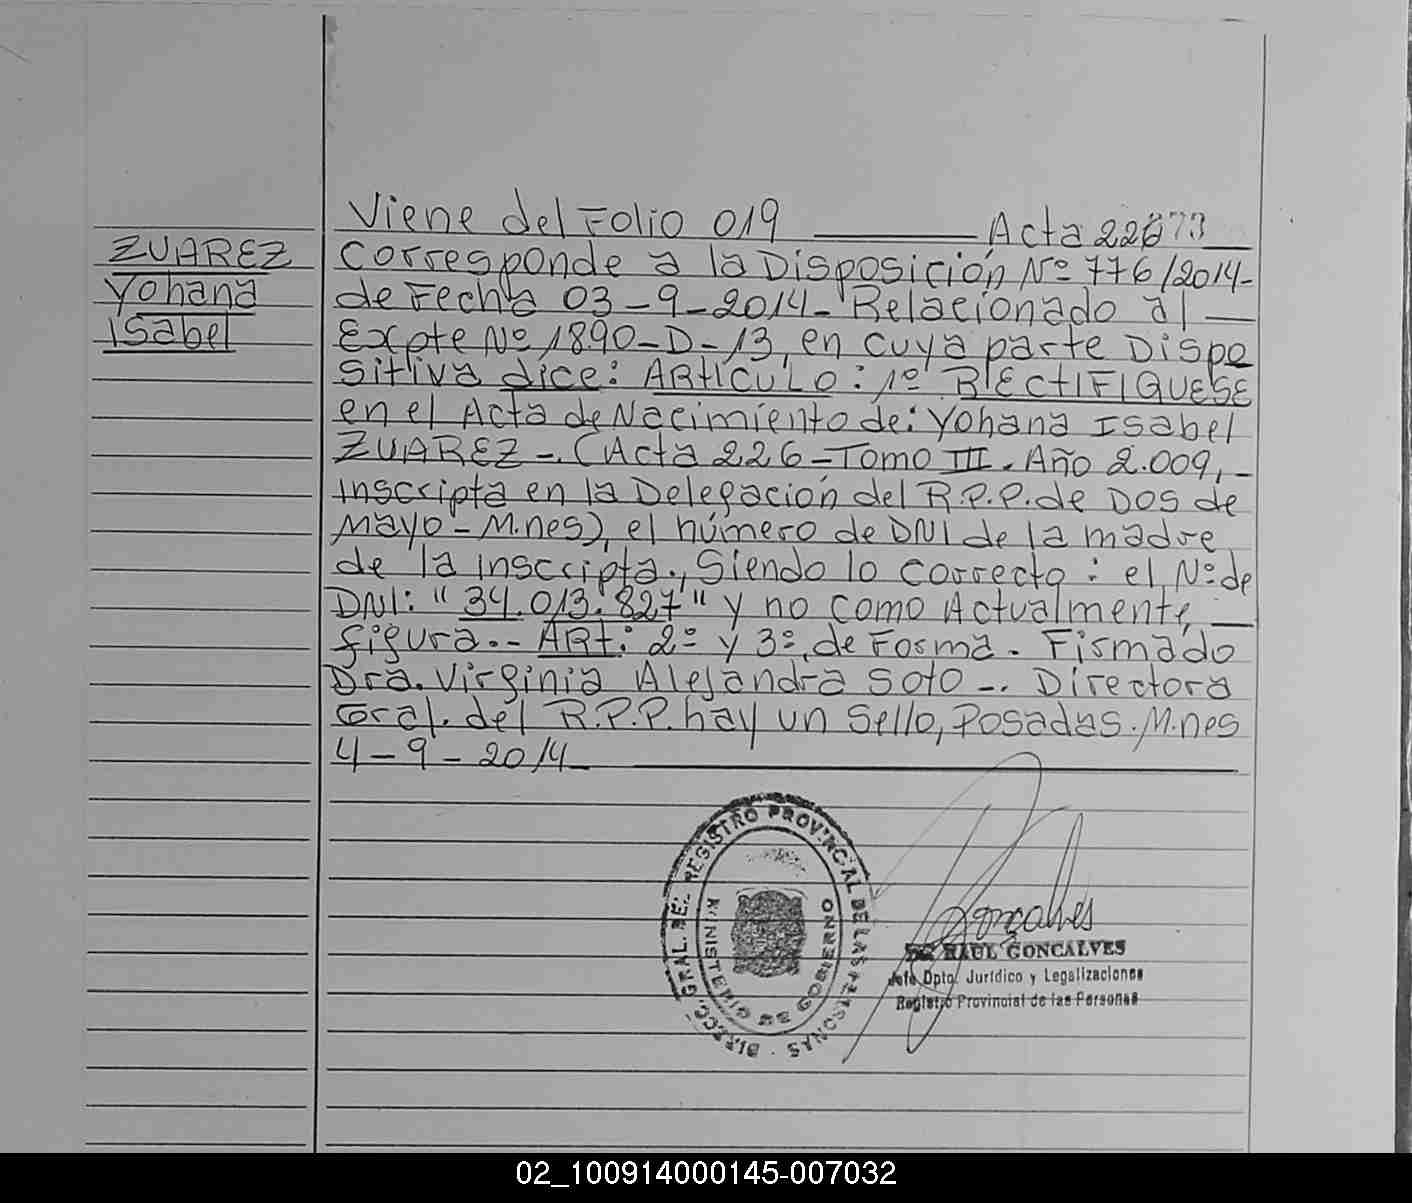 Viene del Folio 019 Acta 226
ZUAREZ
Yohana
Isabel
Corresponde a la Disposición Nº 776/2014-
de Fecha 03-9-2014- Relacionado al
Expte Nº 1890-D-13, en cuya parte Dispo
sitiva dice: ARTICULO: 1º RECTIFIQUESE
en el Acta de Nacimiento de: Yohana Isabel
ZUAREZ-. (Acta 226-Tomo III. Año 2.009,-
Inscripta en la Delegación del R.P.P. de Dos de
Mayo-M.nes), el número de DNI de la madre
de la inscripta., Siendo lo correcto: el Nº de
DNI: "34.013.827" y no como Actualmente
figura.- ARt: 2º y 3º, de Forma. Firmado
Dra. Virginia Alejandra Soto-. Directora
Gral. del R.P.P. hay un Sello, Posadas. M.nes
4-9-2014
DIRECC. GRAL. DEL REGISTRO PROVINCIAL DE LAS PERSONAS
MINISTERIO DE GOBIERNO
Goncalves
RAUL GONCALVES
Jefe Dpto. Jurídico y Legalizaciones
Registro Provincial de las Personas
02_100914000145-007032